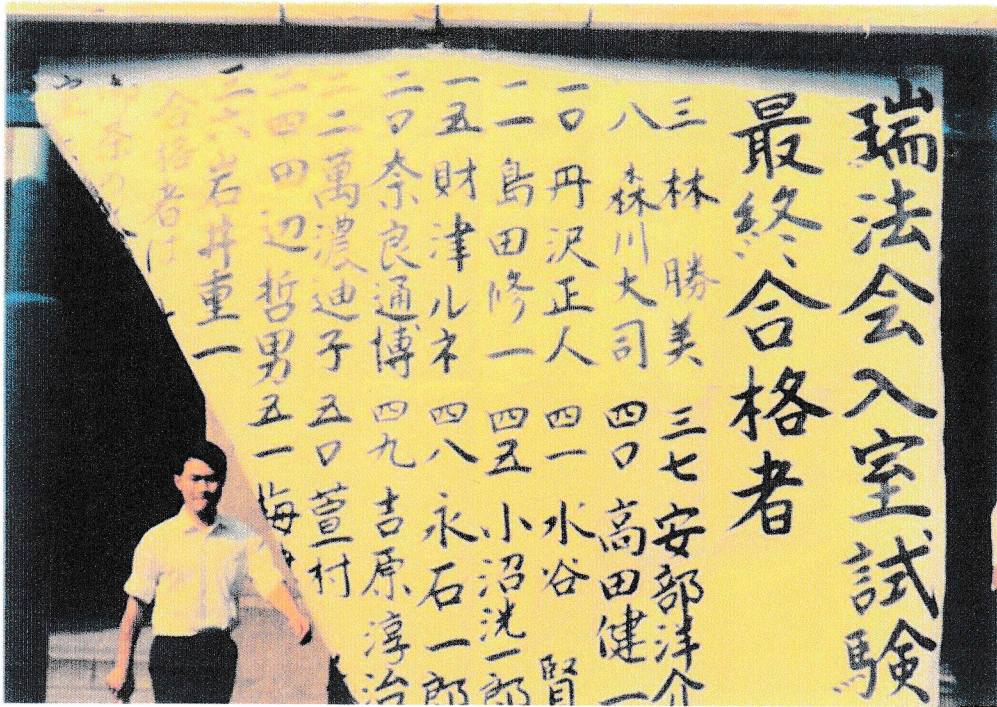 瑞法会入室試験
最終合格者
三 林 勝美 三七 安部洋介
八 森川大司 四〇 高田健一
一〇 丹沢正人 四一 水谷 賢
一一 島田修一 四五 小沼洸一郎
一五 財津ルネ 四八 永石一郎
二〇 奈良通博 四九 吉原淳治
二二 萬濃迪子 五〇 萱村
二四 田辺哲男 五一
二六 岩井重一
合格者は